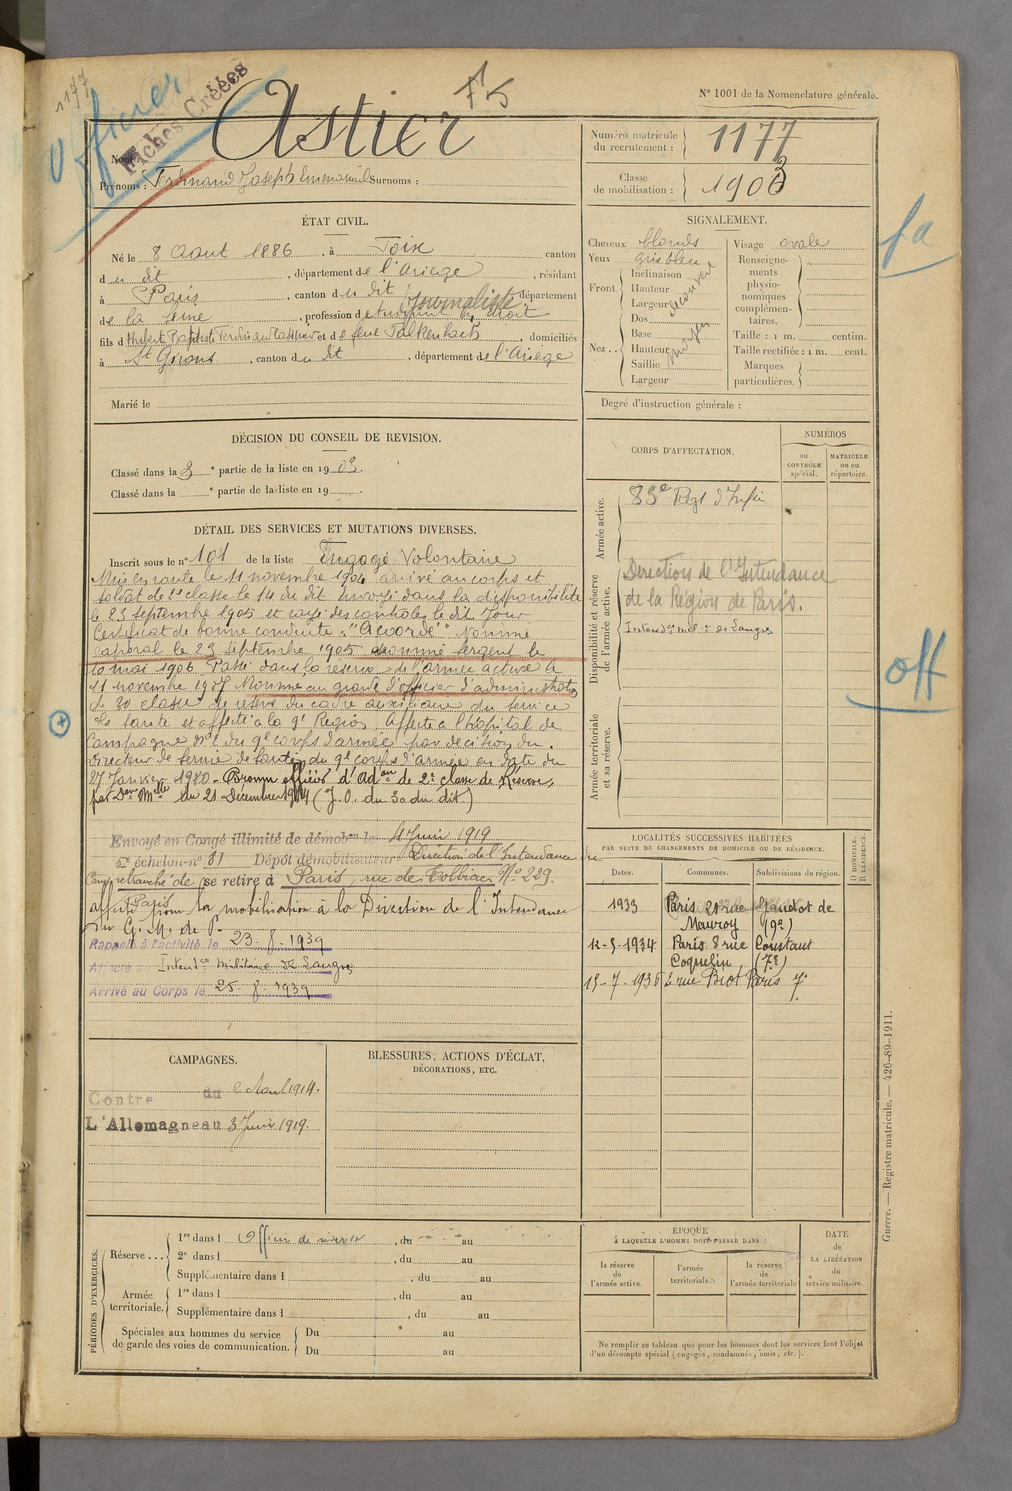 1177
Officier
Fiches Créées
N° 1001 de la Nomenclature générale.
Astier
Nom :
Prénoms : Ferdinand Joseph Emmanuel Surnoms :
Numéro matricule du recrutement : 1177
Classe de mobilisation : 1903
ÉTAT CIVIL.
Né le 8 Aout 1886, à Foix canton
du dit, département de l'Ariège, résidant
à Paris, canton du dit, département
Journaliste
de la Seine, profession d'étudiant en droit
fils d'Hubert Baptiste Ferdinand et de feue Falkenbach, domiciliés
à St Girons, canton du dit, département de l'Ariège
Marié le
SIGNALEMENT.
Cheveux blonds
Yeux gris bleu
Front. Inclinaison
Hauteur
Largeur
Nez.. Dos
Base
Hauteur
Saillie
Largeur
moyen
Visage ovale
Renseignements physionomiques complémentaires.
Taille : 1 m. centim.
Taille rectifiée : 1 m. cent.
Marques particulières.
Degré d'instruction générale :
fa
DÉCISION DU CONSEIL DE REVISION.
Classé dans la 3e partie de la liste en 1903.
Classé dans la e partie de la liste en 19
CORPS D'AFFECTATION.
NUMÉROS
au CONTRÔLE spécial.
MATRICULE ou au répertoire.
Armée active.
83e Regt d'Infie
Disponibilité et réserve de l'armée active.
Direction de l'Intendance
de la Région de Paris.
Intendce milre de Langres
Armée territoriale et sa réserve.
off
DÉTAIL DES SERVICES ET MUTATIONS DIVERSES.
Inscrit sous le n° 101 de la liste Engagé Volontaire
Mis en route le 11 novembre 1904 arrivé au corps et
soldat de 2e classe le 14 du dit Envoyé dans la disponibilité
le 23 septembre 1905 et rayé des contrôles le dit Jour
Certificat de bonne conduite "Accordé" Nommé
caporal le 23 septembre 1905 nommé Sergent le
10 mai 1906 Passé dans la réserve de l'armée active le
11 novembre 1907 Nommé au grade d'officier d'administration
de 3e classe de réserve du cadre auxiliaire du service
de santé et affecté à la 9e Région Affecté à l'hôpital de
Campagne n° du 9e corps d'armée par décision du
Directeur de Service de Santé du 9e corps d'armée en date du
27 Janvier 1910 - Promu officier d'Adon de 2e classe de Réserve,
par Don Mlle du 21 Décembre 1914 (J.O. du 30 du dit)
Envoyé en Congé illimité de démobon le 4 Juin 1919
échelon-n° 81 Dépôt démobilisateur Direction de l'Intendance du
Camp retranché de Paris se retire à Paris, rue de Tolbiac N° 229.
affecté pour la mobilisation à la Direction de l'Intendance
du G. M. de P.
Rappelé à l'activité le 23-8-1939
Affecté au Intendce Militaire de Langres
Arrivé au Corps le 25-8-1939
LOCALITÉS SUCCESSIVES HABITÉES
PAR SUITE DE CHANGEMENTS DE DOMICILE OU DE RÉSIDENCE.
Dates.
Communes.
Subdivisions de région.
D DOMICILE.
R RÉSIDENCE.
1933 Paris 21 rue Gaudot de
Mauroy (9e)
12-5-1934 Paris 8 rue Constant
Coquelin (7e)
15-7-1936 2 rue Biot Paris
CAMPAGNES.
Contre du 2 Aout 1914.
L'Allemagne au 3 Juin 1919.
BLESSURES, ACTIONS D'ÉCLAT,
DÉCORATIONS, ETC.
PÉRIODES D'EXERCICES.
Réserve...
1re dans l Officier de réserve, du au
2e dans l , du au
Supplémentaire dans l , du au
Armée territoriale.
1re dans l , du au
Supplémentaire dans l , du au
Spéciales aux hommes du service
de garde des voies de communication.
Du au
Du au
ÉPOQUE
À LAQUELLE L'HOMME DOIT PASSER DANS :
la réserve de l'armée active.
l'armée territoriale.
la réserve de l'armée territoriale
DATE
de
LA LIBÉRATION
du
service militaire.
Ne remplir ce tableau que pour les hommes dont les services font l'objet
d'un décompte spécial (engagés, condamnés, omis, etc.).
Guerre. — Registre matricule. — 426-89-1911.